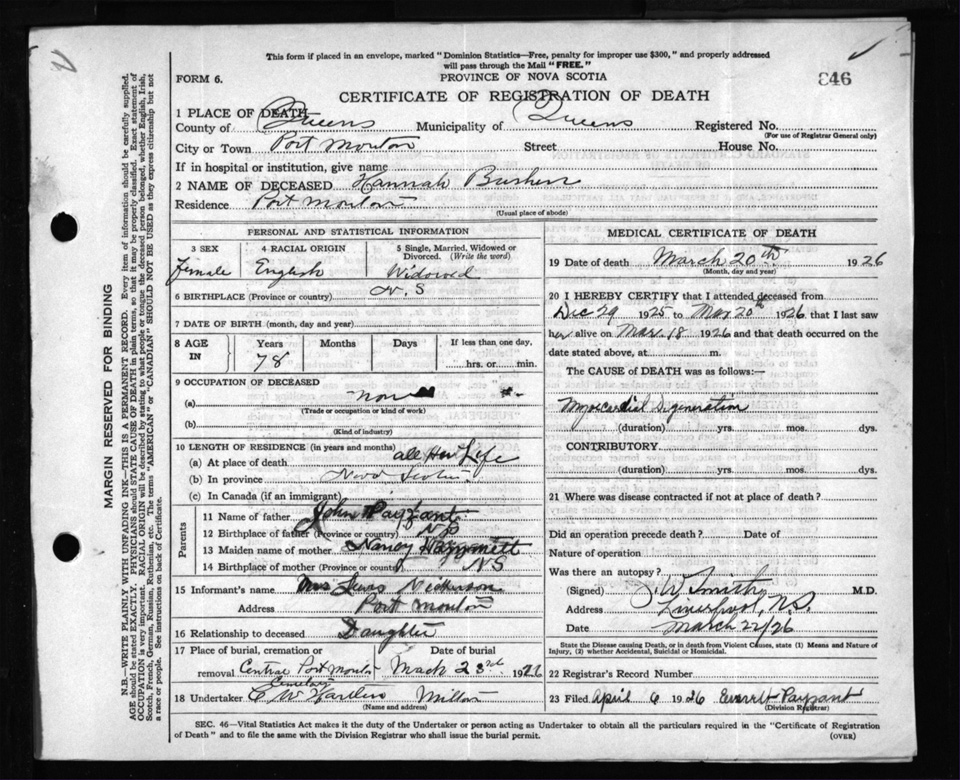 This form if placed in an envelope, marked "Dominion Statistics—Free, penalty for improper use $300," and properly addressed
will pass through the Mail "FREE."
FORM 6.
PROVINCE OF NOVA SCOTIA
346
CERTIFICATE OF REGISTRATION OF DEATH
1 PLACE OF DEATH
County of Queens Municipality of Queens Registered No.
(For use of Registrar General only)
City or Town Port Mouton Street House No.
If in hospital or institution, give name
2 NAME OF DECEASED Hannah
Residence Port Mouton
(Usual place of abode)
PERSONAL AND STATISTICAL INFORMATION
3 SEX 4 RACIAL ORIGIN 5 Single, Married, Widowed or
Divorced. (Write the word)
Female English Widowed
6 BIRTHPLACE (Province or country) N. S
7 DATE OF BIRTH (month, day and year)
8 AGE IN Years Months Days If less than one day,
78 hrs. or min.
9 OCCUPATION OF DECEASED
(a) none
(Trade or occupation or kind of work)
(b)
(Kind of industry)
10 LENGTH OF RESIDENCE (in years and months)
(a) At place of death all Her Life
(b) In province Nova Scotia
(c) In Canada (if an immigrant)
Parents
11 Name of father John Payzant
12 Birthplace of father (Province or country) NS
13 Maiden name of mother Nancy
14 Birthplace of mother (Province or country) NS
15 Informant's name Mrs Lewis Nickerson
Address Port Mouton
16 Relationship to deceased Daughter
17 Place of burial, cremation or Date of burial
removal Central Port Mouton Mach 23rd 1926
Cemetary
18 Undertaker C W Milton
(Name and address)
MEDICAL CERTIFICATE OF DEATH
19 Date of death March 20th 1926
(Month, day and year)
20 I HEREBY CERTIFY that I attended deceased from
Dec 29 1925 to Mar 20th 1926, that I last saw
her alive on Mar. 18 1926 and that death occurred on the
date stated above, at m.
The CAUSE of DEATH was as follows:—
Myocardial Degeneration
(duration) yrs. mos. dys.
CONTRIBUTORY
(duration) yrs. mos. dys.
21 Where was disease contracted if not at place of death?
Did an operation precede death? Date of
Nature of operation
Was there an autopsy?
(Signed) J. W. Smith M.D.
Address Liverpool, N.S.
Date March 22/26
State the Disease causing Death, or in death from Violent Causes, state (1) Means and Nature of
Injury, (2) whether Accidental, Suicidal or Homicidal.
22 Registrar's Record Number
23 Filed April 6 1926 Everett Payzant
(Division Registrar)
SEC. 46—Vital Statistics Act makes it the duty of the Undertaker or person acting as Undertaker to obtain all the particulars required in the "Certificate of Registration
of Death" and to file the same with the Division Registrar who shall issue the burial permit.
(OVER)
MARGIN RESERVED FOR BINDING
N.B.—WRITE PLAINLY, WITH UNFADING INK—THIS IS A PERMANENT RECORD. Every item of information should be carefully supplied.
AGE should be stated EXACTLY. PHYSICIANS should STATE CAUSE OF DEATH in plain terms, so that it may be properly classified. Exact statement of
OCCUPATION is very important. RACIAL ORIGIN will be described by stating to what people or tongue the deceased person belonged, whether English, Irish,
Scotch, French, German, Russian, Ruthenian, etc. The terms "AMERICAN" or "CANADIAN" SHOULD NOT BE USED as they express citizenship but not
a race or people. See instructions on back of Certificate.